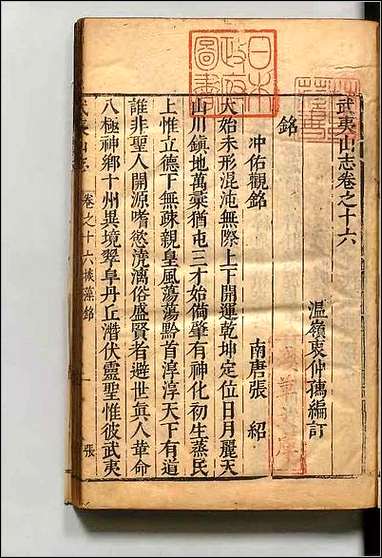 武夷山志卷之十六
溫嶺衷仲孺編訂
銘
冲佑觀銘
南唐張紹
大始未形混沌無際上下開運乾坤定位日月麗天
山川鎮地萬彙猶屯三才始備肇有神化初生蒸民
上惟立德下無疎親皇風蕩蕩黔首淳淳天下有道
誰非聖人開源嗜慾澆漓俗盛賢者避世真人華命
八極神鄉十州異境翠阜丹丘潛伏靈聖惟彼武夷
武夷山志
卷之十六
摛藻銘
張
日本
政府
圖書